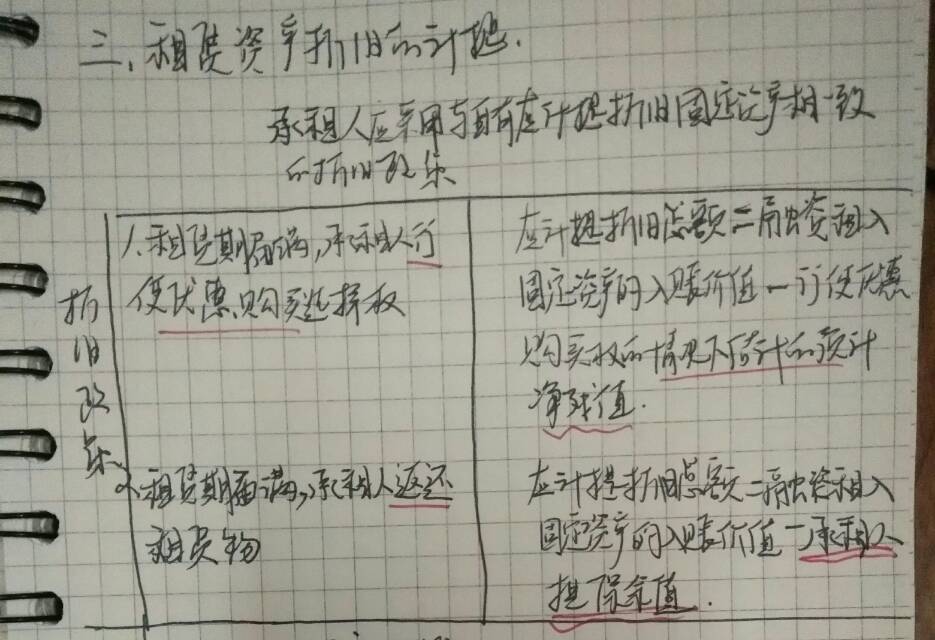 三、租赁资产折旧的计提.
承租人应采用与自有应计提折旧固定资产相一致
的折旧政策
折旧政策
1.租赁期届满,承租人行
使优惠购买选择权
应计提折旧总额=融资租入
固定资产的入账价值-行使优惠
购买权的情况下估计的预计
净残值.
2.租赁期届满,承租人返还
租赁物
应计提折旧总额=融资租入
固定资产的入账价值-承租人
担保余值.